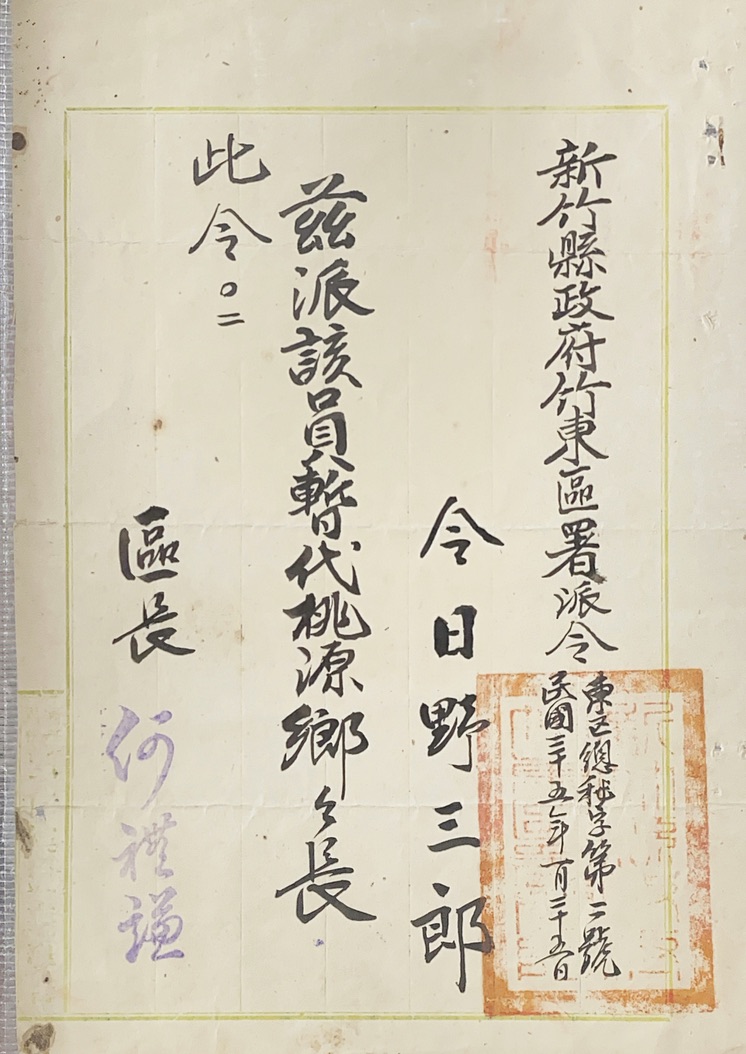 新竹縣政府竹東區署派令
東区總秘字第二號
民國三十五年一月二十五日
令日野三郎
茲派該員暫代桃源鄉々長
此令。
區長 何禮謙